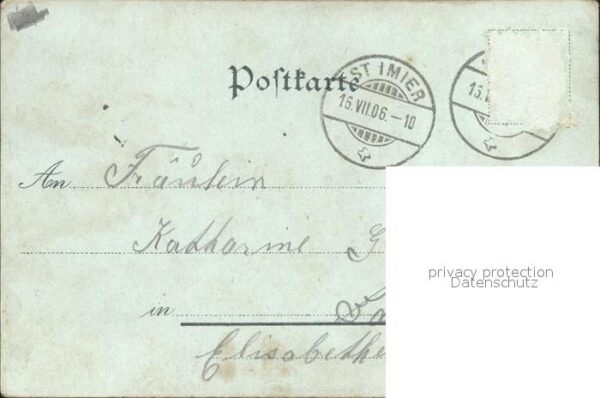 Postkarte
ST IMIER
16.VII.06.–10
16.V
An Fräulein
Katharine G
in
Elisabethe
privacy protection
Datenschutz